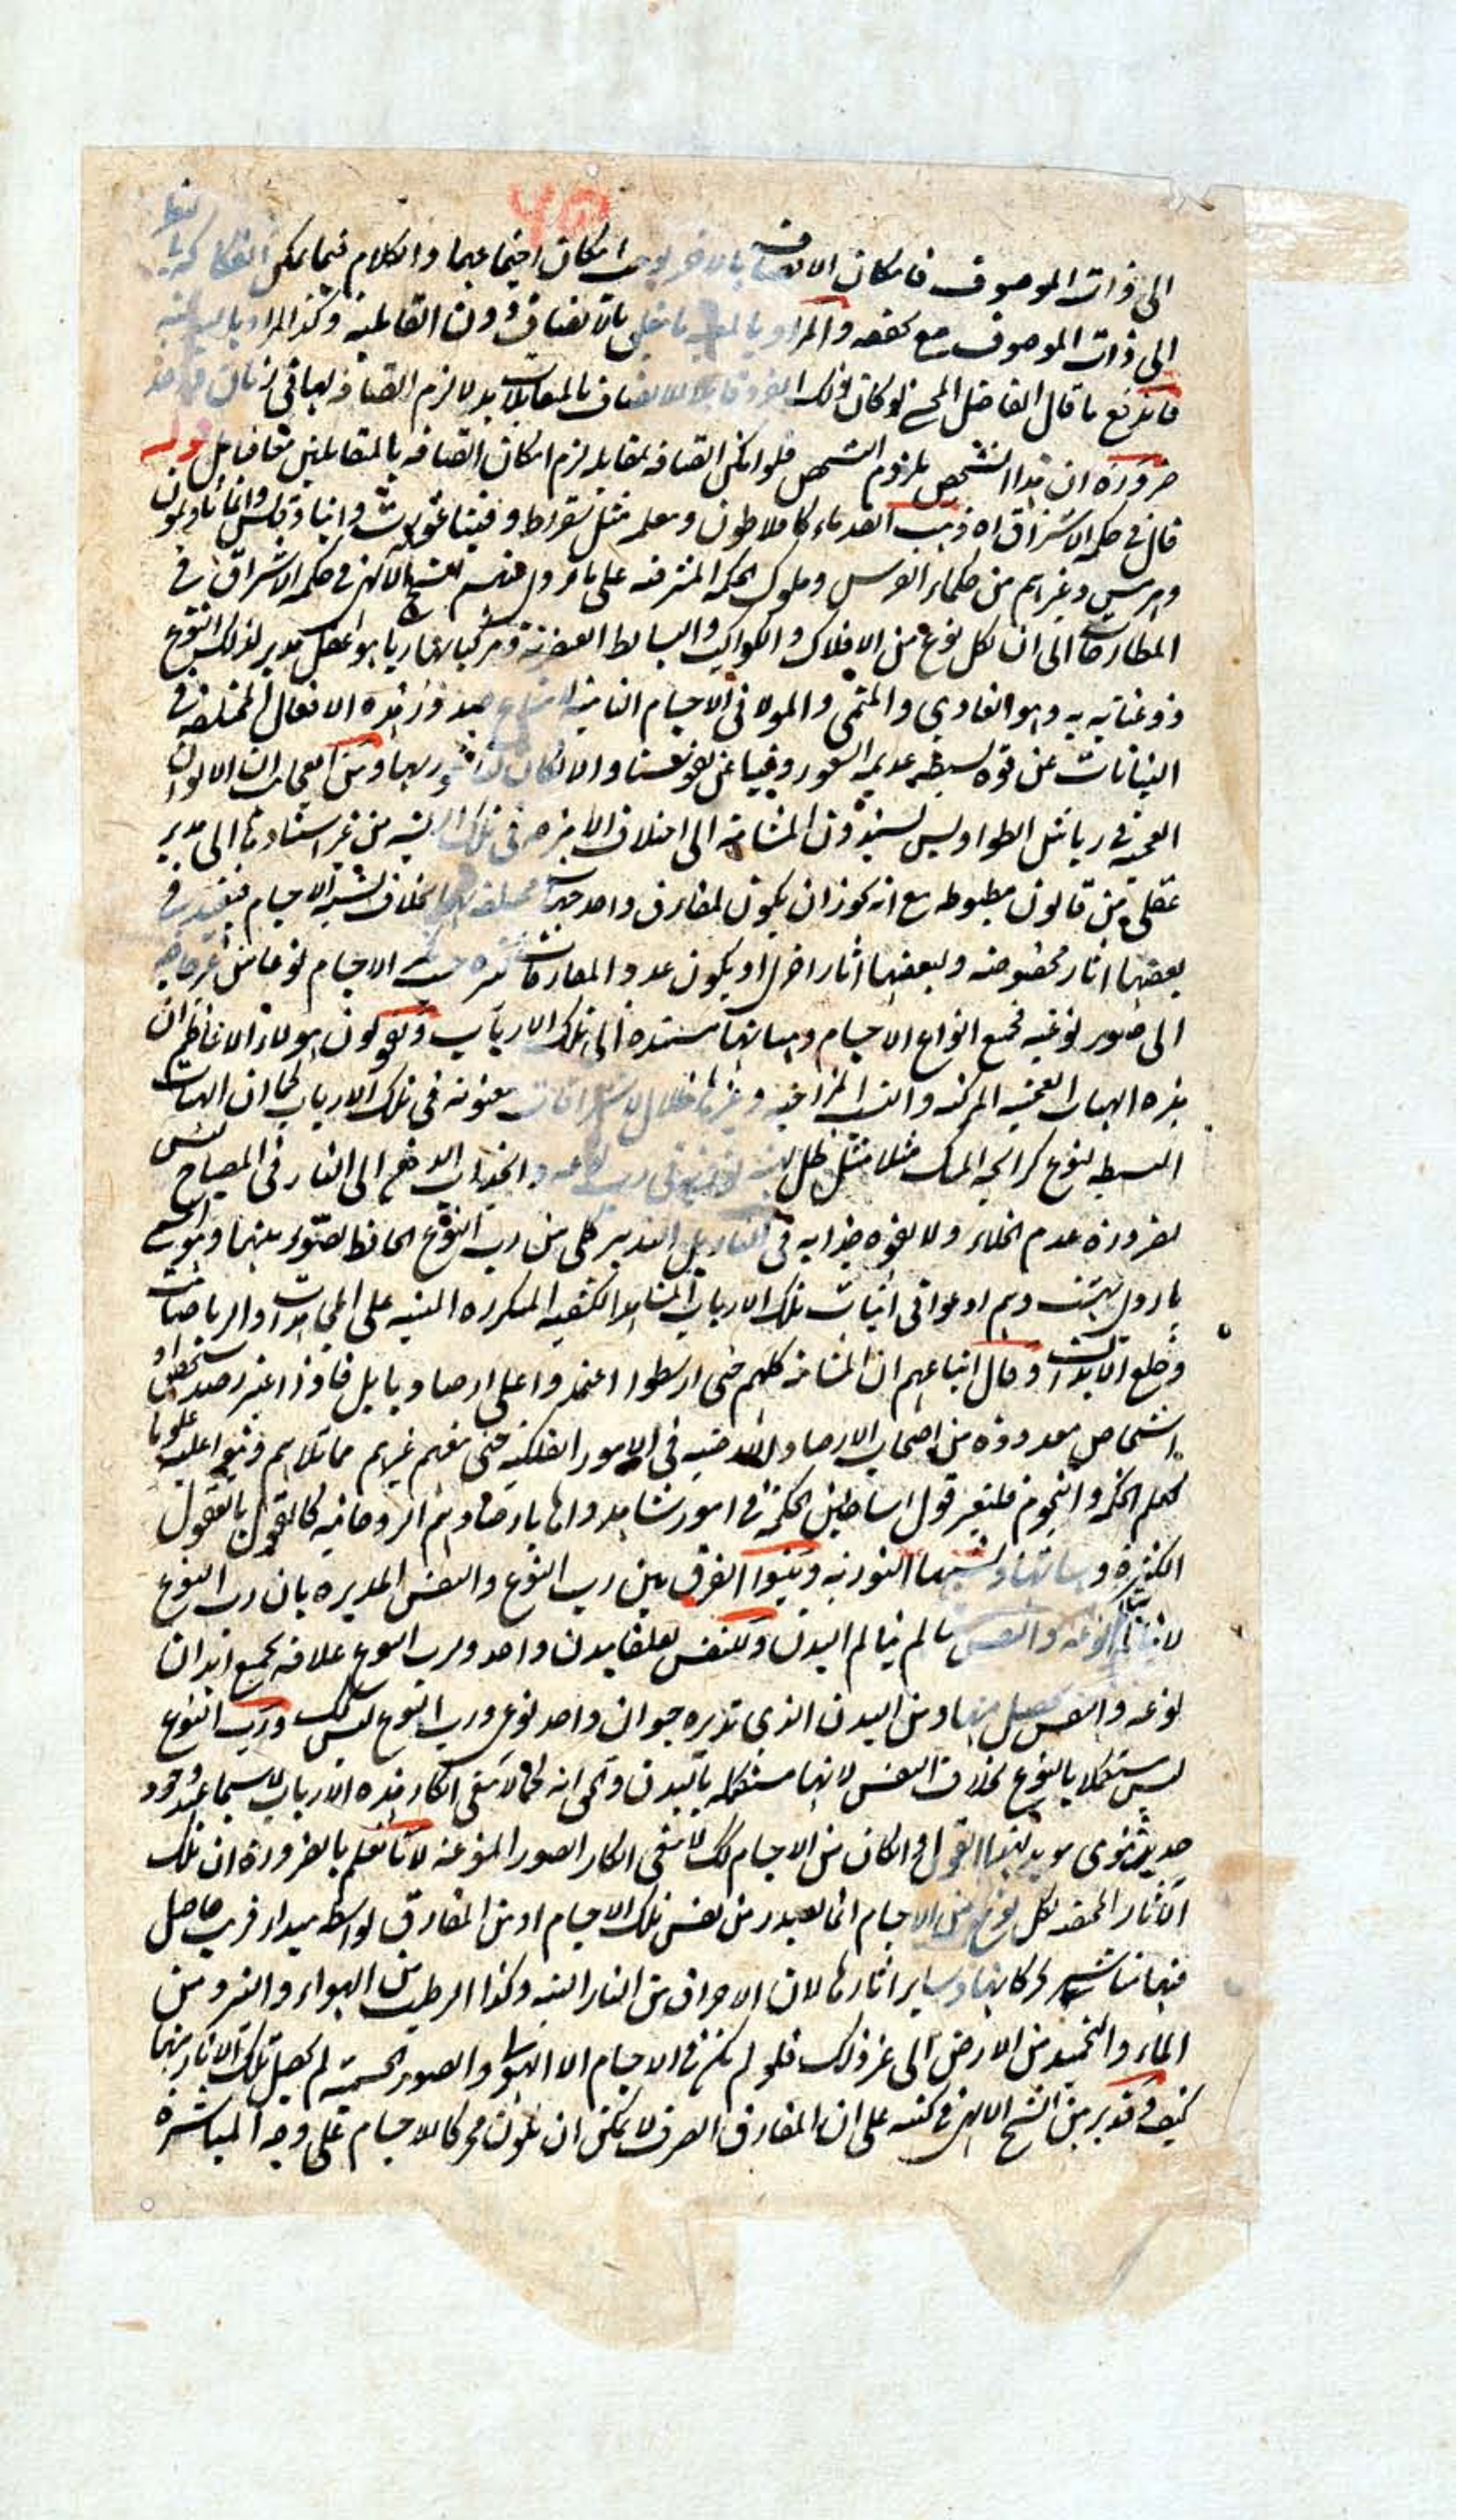 الى ذات الموصوف فامكان الاتصاف بالاخر يوجب امكان اجتماعهما والكلام فيما يمكن
الى ذات الموصوف مع كصفه والمراد بالاتصاف دون القابلية وكذا المراد
فاندفع ما قال الفاضل المحشي لو كان ذلك الفرد قابلا للاتصاف بالمقابلات بدلا لزم اتصافه بها في زمان واحد
ضرورة ان هذا التشخص ملزوم الشخص فلو امكن اتصافه بمقابله لزم امكان اتصافه بالمتقابلين معا فتامل قوله
قال في حكمة الاشراق اه ذهب القدماء كافلاطون ومعلمه مثل سقراط وفيثاغورث وانباذقلس واغاثاذيمون
وهرمس وغيرهم من حكماء الفرس وملوك الحكمة المشرقية على ما نقل عنهم الشيخ الالهي في حكمة الاشراق في
المطارحات الى ان لكل نوع من الافلاك والكواكب والبسائط العنصرية ومركباتها ربا هو عقل مدبر لذلك النوع
ذو عناية به وهو الغاذي والمنمي والمولد في الاجسام النامية لامتناع صدور هذه الافعال المختلفة في
النباتات عن قوة بسيطة عديمة الشعور وفينا عن نفوسنا والا لكان لنا شعور بها ومن العجائب ان الالوان
العجيبة في رياش الطواويس يسند المشائية الى اختلاف الامزجة في تلك الريشة من غير استنادها الى مدبر
عقلي من قانون مضبوط مع انه يجوز ان يكون لمفارق واحد جهات مختلفة بخلاف الاجسام فيفيد في
بعضها اثار مخصوصة ولبعضها اثارا اخرى او يكون عدد المفارقات كثيرة حسب الاجسام نوعا من غير حاجة
الى صور نوعية فجميع انواع الاجسام وهيئاتها مستندة الى تلك الارباب ويقولون هؤلاء الاعاظم ان
هذه الهيئات العجيبة المركبة والنسب المزاجية وغيرها ظلال لاشراقات معنوية في تلك الارباب كما ان الهيئات
البسيطة لنوع كرائحة المسك مثلا مثل ظل لهيئة نورية في رب نوعه وانجذاب الدهن الى النار في المصباح ليس
لضرورة عدم الخلاء ولا لقوة جذابة في النار بل لتدبير كلي من رب النوع الحافظ لصنوبريتها وهو المسمى
باردي بهشت وهم ادعوا في اثبات تلك الارباب المشاهدة الكشفية المتكررة المبنية على المجاهدات والرياضات
وخلع الابدان وقال اتباعهم ان المشائية كلهم حتى ارسطوا اعتمدوا على ارصاد بابل فاذا اعتبر رصد شخص او
اشخاص معدودة من اصحاب الارصاد في الامور الفلكية حتى تبعهم غيرهم مما تلاهم وبنوا عليه علوما
كعلم الحكمة والنجوم فليعتبر قول اساطين الحكمة في امور شاهدوها بارصادهم الروحانية كالقول بالعقول
الكثيرة وهيئاتها ونسبها النورية وبينوا الفرق بين رب النوع والنفس المدبرة بان رب النوع
لا يتالم بتالم نوعه والنفس تالم فيالم البدن وللنفس تعلقا ببدن واحد ولرب النوع علاقة بجميع ابدان
نوعه والنفس يحصل منها ومن البدن الذي تدبره حيوان واحد نوعي ورب النوع ليس كك ورب النوع
ليس مستكملا بالنوع بخلاف النفس لانها مستكملة بالبدن والحق انه كما لا ينبغي انكار هذه الارباب لا سيما عند ورود
حديث نبوي مؤيد لهذا القول وان كان من الاجسام كك لا ينبغي انكار الصور النوعية لانا نعلم بالضرورة ان تلك
الاثار المختصة لكل نوع من الاجسام انما يصدر من نفس تلك الاجسام او من المفارق بواسطة مبداء قريب حاصل
فيها مباشر لحركاتها وساير اثارها لان الاحراق من النار البتة وكذا الرطيب من الهواء والتبريد من
الماء والتجميد من الارض الى غير ذلك فلو لم يكن في الاجسام الا الهيولى والصور الجسمية لم يحصل تلك الاثار منها
كيف وقد برهن الشيخ الالهي في كتبه على ان المفارق الصرف لا يمكن ان يكون محركا للاجسام على وجه المباشرة